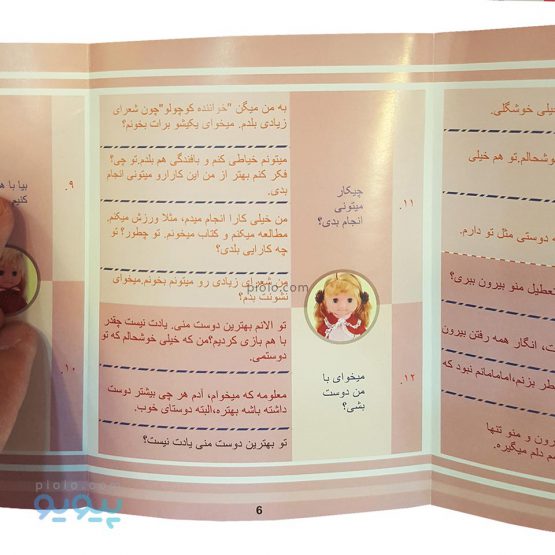 یلی خوشگلی.
وشحالم.تو هم خیلی
ه دوستی مثل تو دارم.
تعطیل منو بیرون ببری؟
ت، انگار همه رفتن بیرون
طر بزنم،امامامانم نبود که
رون و منو تنها
م دلم میگیره.
۱۱.
چیکار
میتونی
انجام بدی؟
به من میگن "خواننده کوچولو"چون شعرای
زیادی بلدم. میخوای یکیشو برات بخونم؟
میتونم خیاطی کنم و بافندگی هم بلدم.تو چی؟
فکر کنم بهتر از من این کارارو میتونی انجام
بدی.
من خیلی کارا انجام میدم، مثلا ورزش میکنم.
مطالعه میکنم و کتاب میخونم. تو چطور؟ تو
چه کارایی بلدی؟
من شعرای زیادی رو میتونم بخونم.میخوای
نشونت بدم؟
۱۲.
میخوای با
من دوست
بشی؟
تو الانم بهترین دوست منی. یادت نیست چقدر
با هم بازی کردیم؟من که خیلی خوشحالم که تو
دوستمی.
معلومه که میخوام، آدم هر چی بیشتر دوست
داشته باشه بهتره،البته دوستای خوب.
تو بهترین دوست منی یادت نیست؟
۹.
بیا با ه
کنیم
۱۰.
6
pioio.com
pioio.com
پیویو